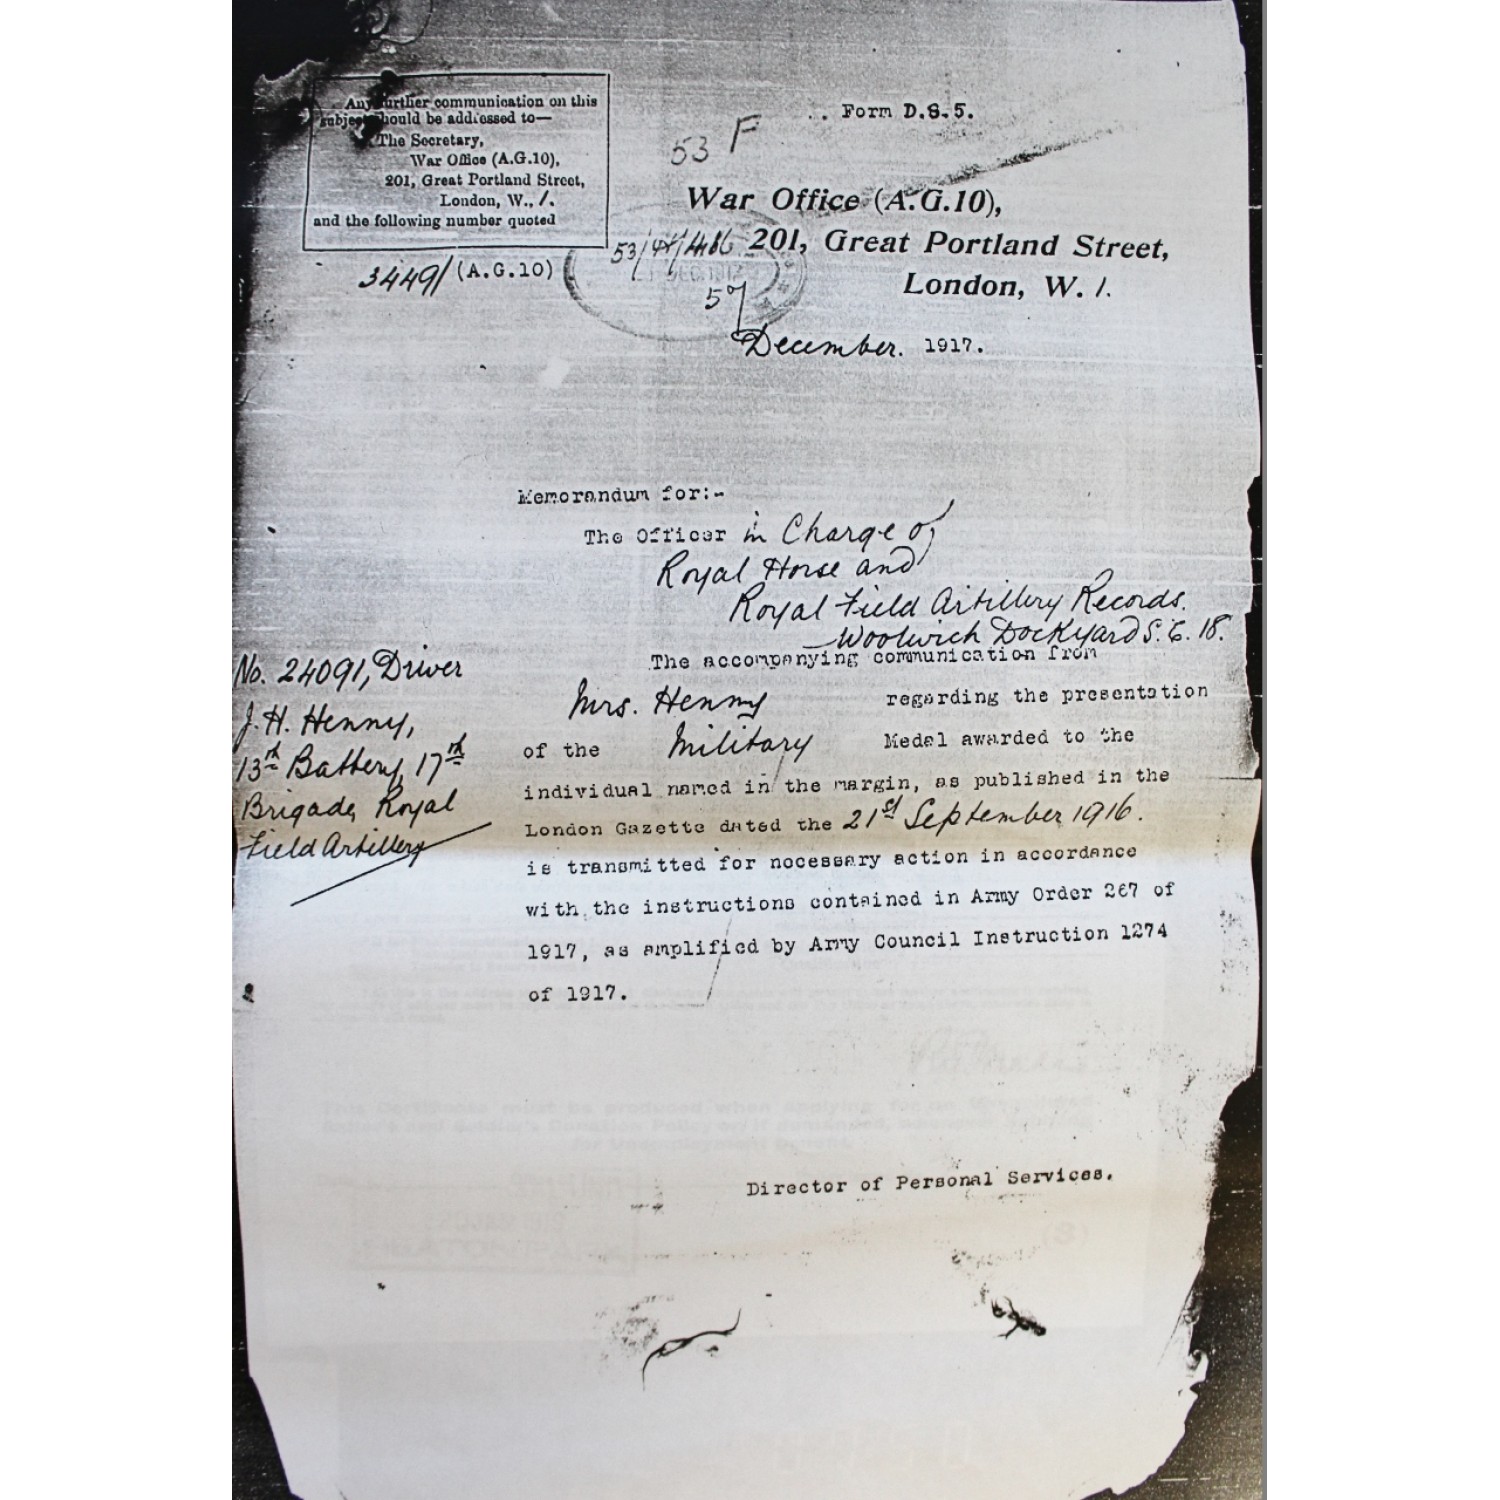 Any further communication on this
subject should be addressed to—
The Secretary,
War Office (A.G.10),
201, Great Portland Street,
London, W., 1.
and the following number quoted
3449/ (A.G.10)
Form D.S.5.
53 F
War Office (A.G.10),
201, Great Portland Street,
London, W. 1.
December. 1917.
Memorandum for:-
The Officer in Charge of
Royal Horse and
Royal Field Artillery Records.
Woolwich Dockyard S.E. 18.
No. 24091, Driver
J. H. Henny,
13th Battery, 17th
Brigade, Royal
Field Artillery
The accompanying communication from
Mrs. Henny regarding the presentation
of the Military Medal awarded to the
individual named in the margin, as published in the
London Gazette dated the 21st September 1916.
is transmitted for necessary action in accordance
with the instructions contained in Army Order 267 of
1917, as amplified by Army Council Instruction 1274
of 1917.
Director of Personal Services.